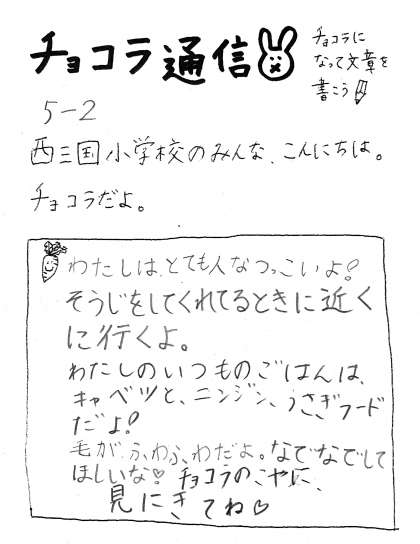 チョコラ通信
チョコラに
なって文章を
書こう
5-2
西三国小学校のみんな、こんにちは。
チョコラだよ。
わたしは、とても人なつっこいよ!
そうじをしてくれてるときに近く
に行くよ。
わたしのいつものごはんは、
キャベツと、ニンジン、うさぎフード
だよ!
毛が、ふわふわだよ。なでなでして
ほしいな♡ チョコラのこやに、
見にきてね♡